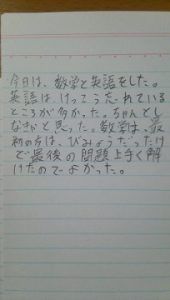 今日は、数学と英語をした。
英語は、けっこう忘れている
ところが多かった。ちゃんとし
なきゃと思った。数学は、最
初の方は、びみょうだったけ
ど最後の問題上手く解
けたのでよかった。